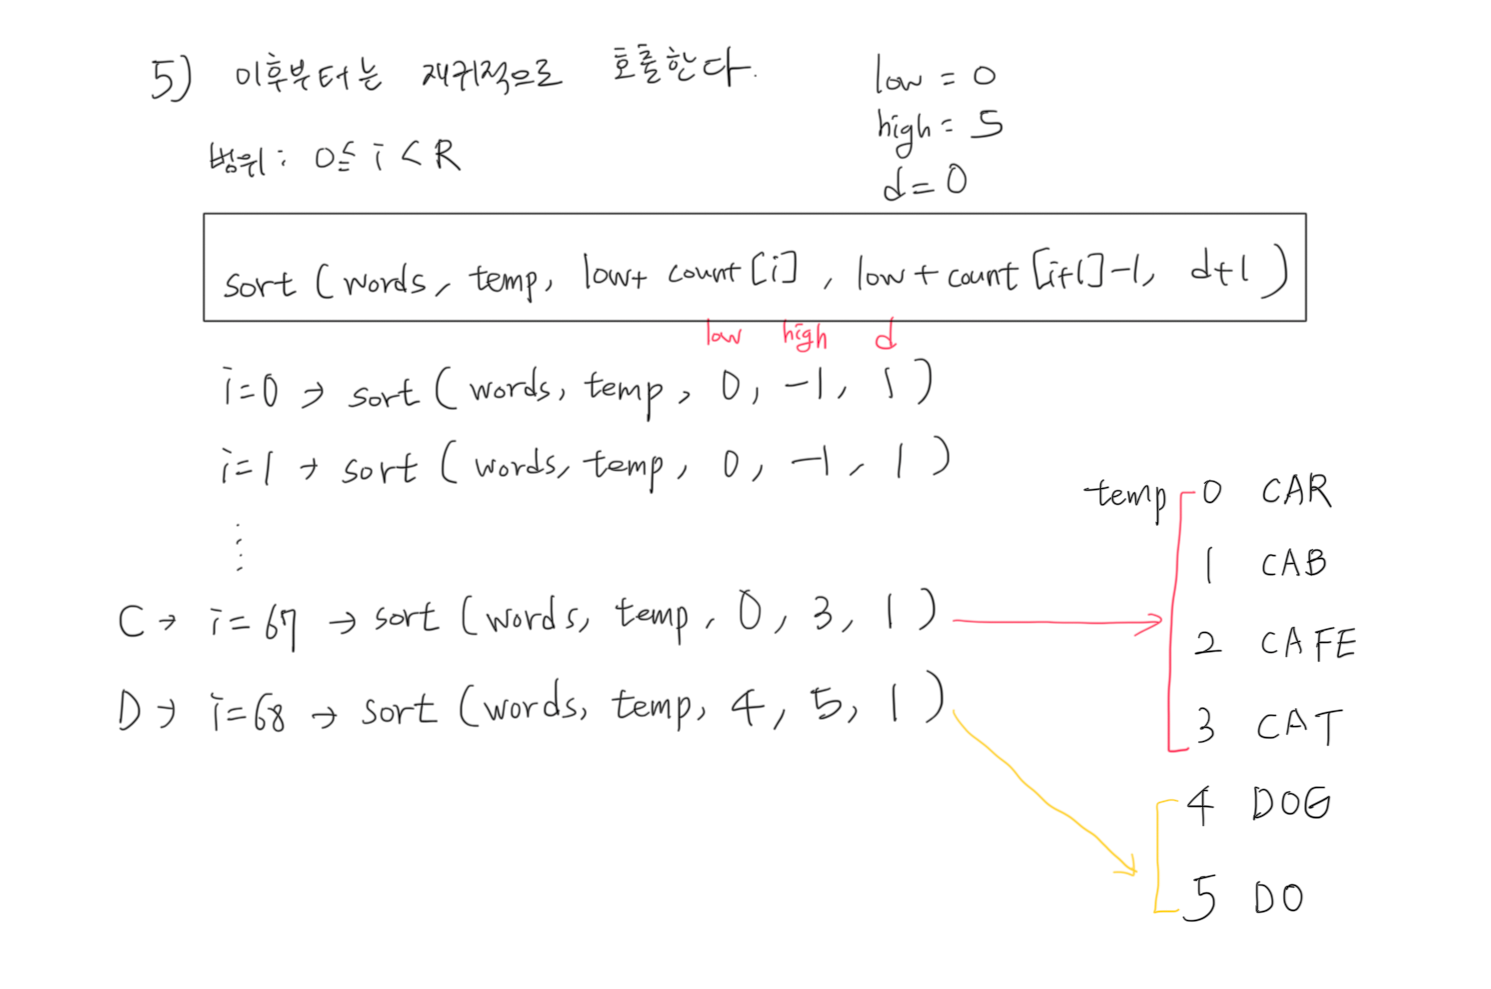 5) 이후부터는 재귀적으로 호출한다.
low = 0
high = 5
d = 0
범위 : 0 ≦ i < R
sort ( words, temp, low + count [i] , low + count [i+1] -1, d+1 )
low high d
i=0 → sort ( words, temp, 0, -1, 1 )
i=1 → sort ( words, temp, 0, -1, 1 )
⋮
C → i = 67 → sort ( words, temp, 0, 3, 1 )
D → i=68 → sort ( words, temp, 4, 5, 1 )
temp 0 CAR
1 CAB
2 CAFE
3 CAT
4 DOG
5 DO